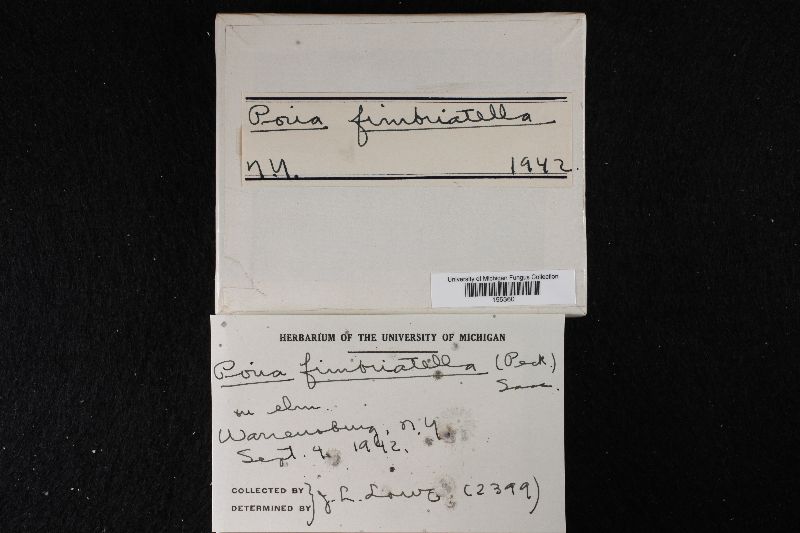 Poria fimbriatella
N.Y. 1942.
University of Michigan Fungus Collection
HERBARIUM OF THE UNIVERSITY OF MICHIGAN
Poria fimbriatella (Peck)
Sacc.
on elm.
Warrensburg, N.Y.
Sept. 4, 1942.
COLLECTED BY
DETERMINED BY } J. L. Lowe (2399)